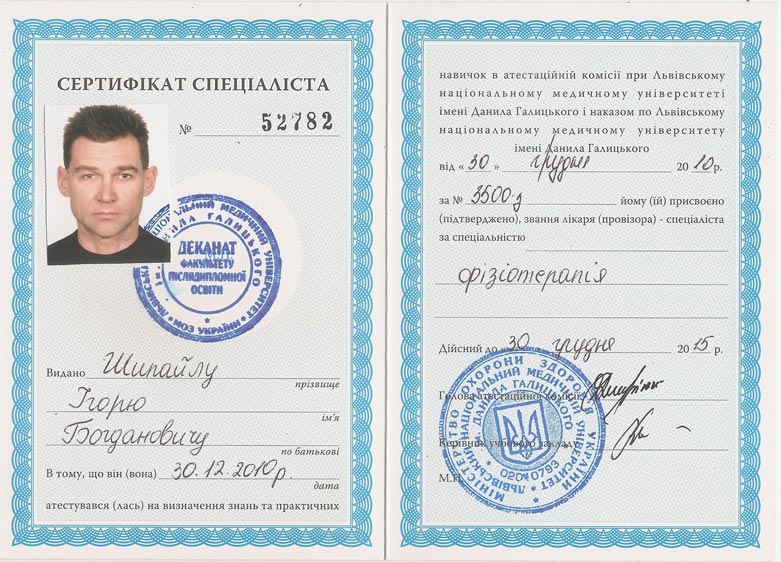 СЕРТИФІКАТ СПЕЦІАЛІСТА
№ 52782
ЛЬВІВСЬКИЙ НАЦІОНАЛЬНИЙ МЕДИЧНИЙ УНІВЕРСИТЕТ
ДАНИЛА ГАЛИЦЬКОГО
ДЕКАНАТ
ФАКУЛЬТЕТУ
ПІСЛЯДИПЛОМНОЇ
ОСВІТИ
МОЗ УКРАЇНИ
Видано Шипайлу
прізвище
Ігорю
ім'я
Богдановичу
по батькові
В тому, що він (вона) 30.12.2010р.
дата
атестувався (лась) на визначення знань та практичних
навичок в атестаційній комісії при Львівському
національному медичному університеті
імені Данила Галицького і наказом по Львівському
національному медичному університету
імені Данила Галицького
від « 30 » грудня 2010р.
за № 3500-з йому (їй) присвоєно
(підтверджено), звання лікаря (провізора) - спеціаліста
за спеціальністю
фізіотерапія
Дійсний до « 30 » грудня 2015 р.
Голова атестаційної комісії
Керівник учбового закладу
М.П.
МІНІСТЕРСТВО ОХОРОНИ ЗДОРОВ'Я УКРАЇНИ
ЛЬВІВСЬКИЙ НАЦІОНАЛЬНИЙ МЕДИЧНИЙ УНІВЕРСИТЕТ
ДАНИЛА ГАЛИЦЬКОГО
02010793